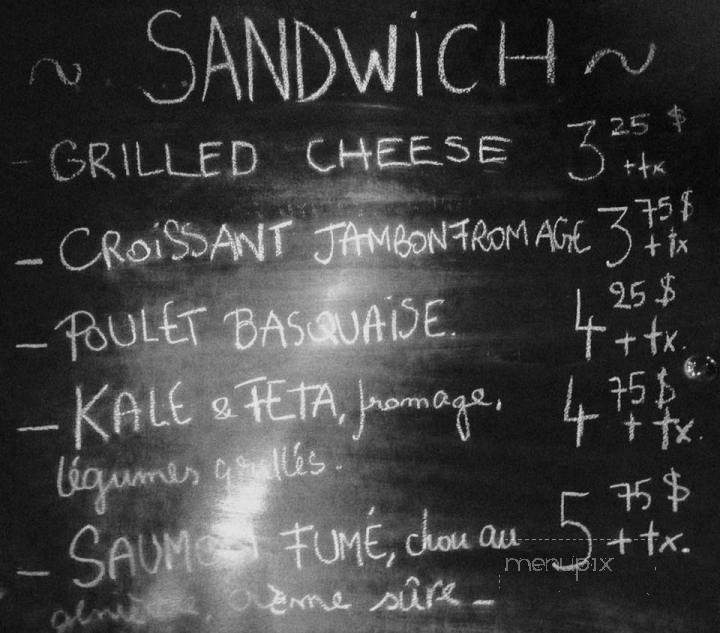 ~ SANDWiCH ~
- GRILLED CHEESE 3 25 $ + tx
- CROiSSANT JAMBON FROMAGE 3 75 $ + tx
- POULET BASQUAISE. 4 25 $ + tx.
- KALE & FETA, fromage, 4 75 $ + tx.
légumes grillés.
- SAUMON FUMÉ, chou au 5 75 $ + tx.
crème sûre -
menupix